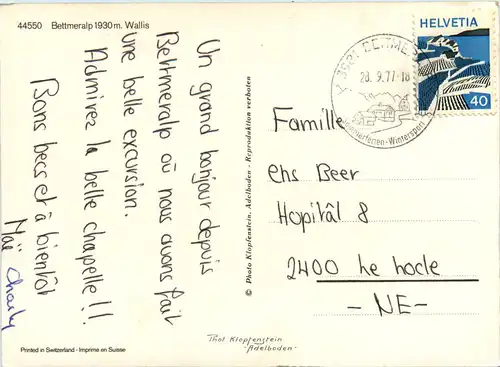 44550 Bettmeralp 1930 m. Wallis
Un grand bonjour depuis
Bettmeralp où nous avons fait
une belle excursion.
Admirez la belle chapelle !!
Bons becs et à bientôt
Maï Charly
© Photo Klopfenstein, Adelboden - Reproduktion verboten
HELVETIA
40
28.9.77-18
Sommerferien-Wintersport
Famille
Chs Beer
Hopitâl 8
2400 Le Locle
- NE -
Phot Klopfenstein
-Adelboden-
Printed in Switzerland - Imprimé en Suisse